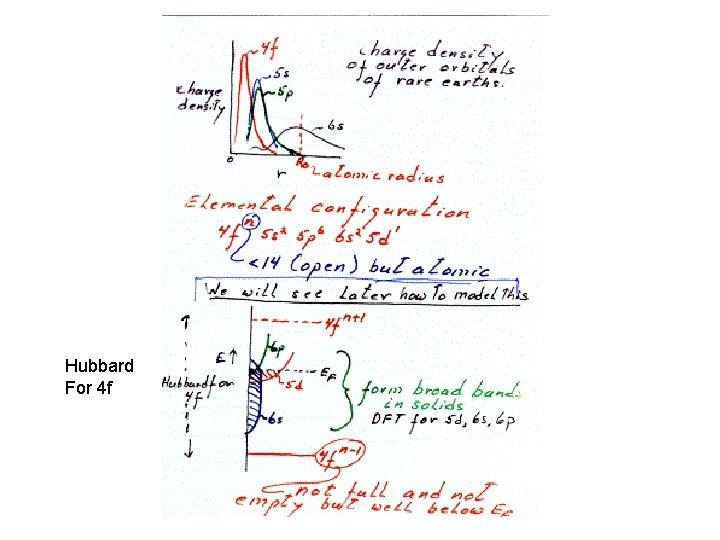 charge density
of outer orbitals
of rare earths.
4f
5s
5p
charge
density
6s
0
r
R₀
atomic radius
Elemental configuration
4fⁿ 5s² 5p⁶ 6s² 5d¹
<14 (open) but atomic
We will see later how to model this
4fⁿ⁺¹
6p
E↑
E_F
Hubbard
For 4f
Hubbard for
4f
5d
form broad bands
in solids
DFT for 5d, 6s, 6p
6s
4fⁿ⁻¹
not full and not
empty but well below E_F